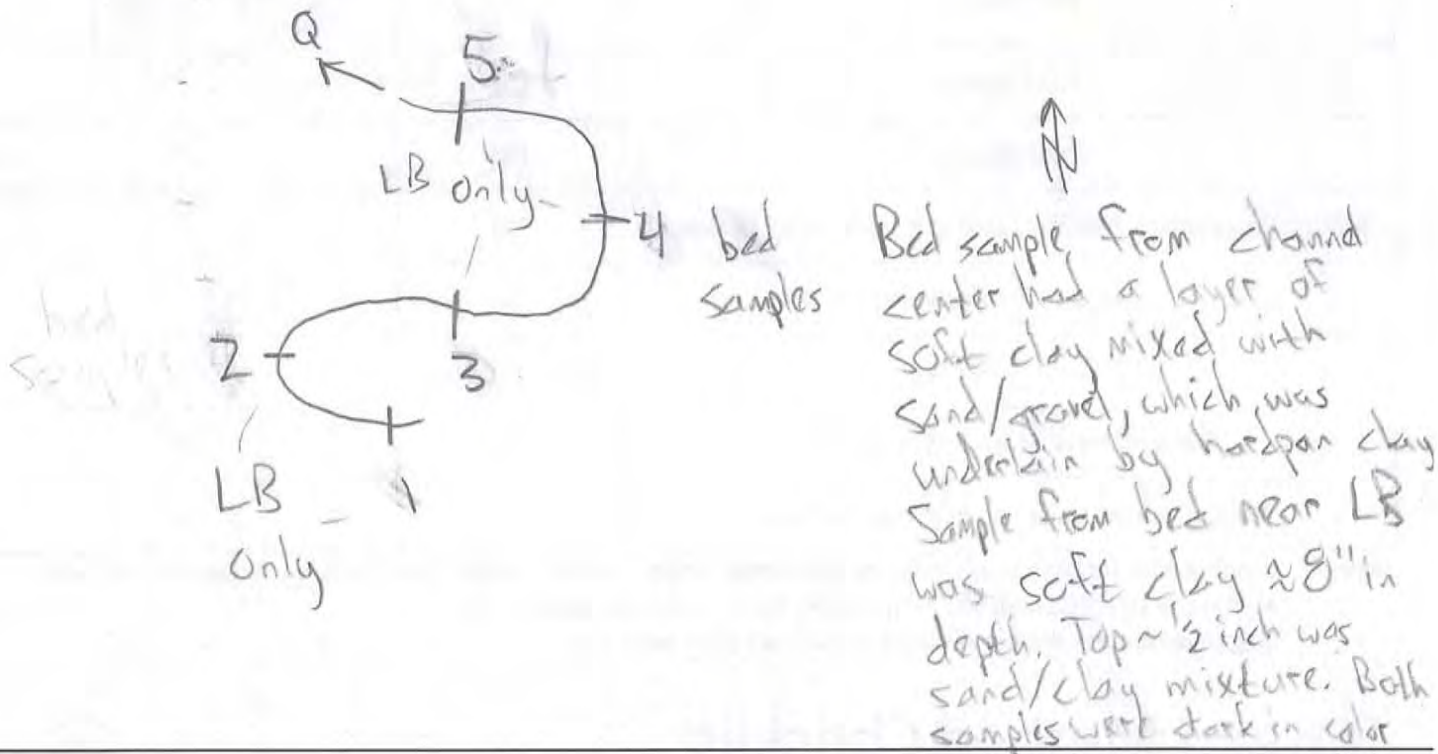 Q
5
LB only
4 bed
samples
2
3
LB
only
1
N
Bed sample from channel
center had a layer of
soft clay mixed with
sand/gravel, which was
underlain by hardpan clay
Sample from bed near LB
was soft clay ≈8" in
depth. Top ~ 1/2 inch was
sand/clay mixture. Both
samples were dark in color
bed
samples